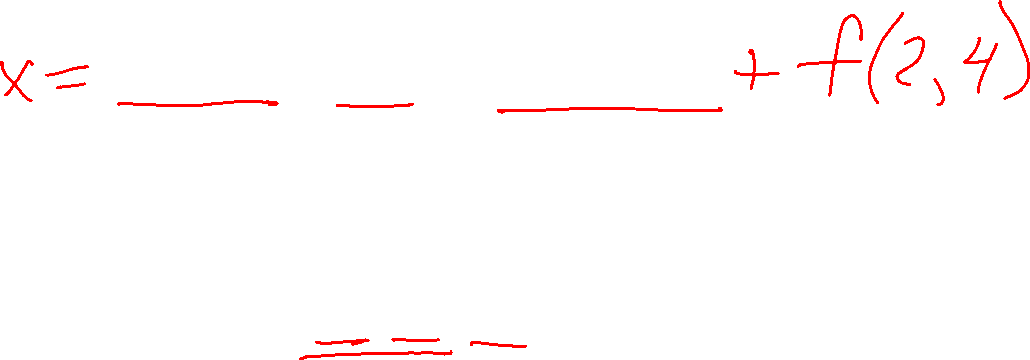 x = ___ __ ____ + f(2,4)